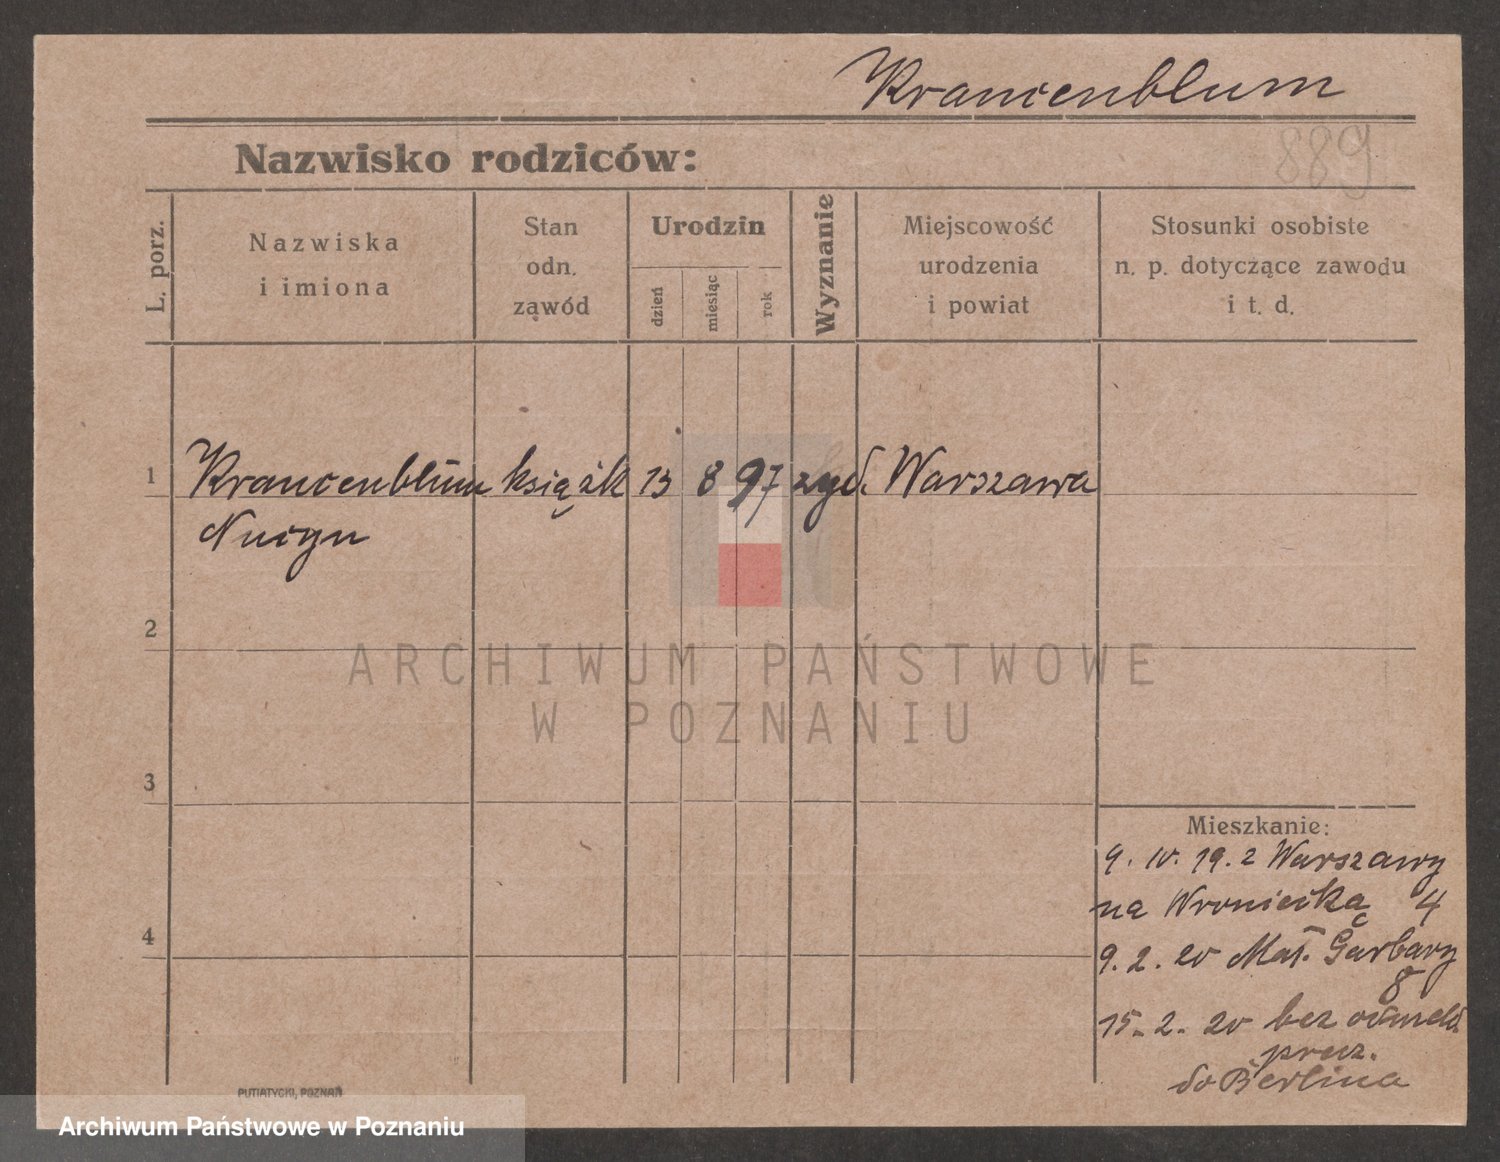 Krancenblum
889
Nazwisko rodziców:
L. porz.
Nazwiska
i imiona
Stan
odn.
zawód
Urodzin
dzień
miesiąc
rok
Wyznanie
Miejscowość
urodzenia
i powiat
Stosunki osobiste
n. p. dotyczące zawodu
i t. d.
1 Krancenblum książk 13 8 97 żyd. Warszawa
2
ARCHIWUM PAŃSTWOWE
W POZNANIU
3
Mieszkanie:
9. 10. 19. z Warszawy
na Wroniecką 4
4
9. 2. 20 Mał. Garbary
8
15. 2. 20 bez odmeld.
do Berlina
PUTIATYCKI, POZNAŃ
Archiwum Państwowe w Poznaniu